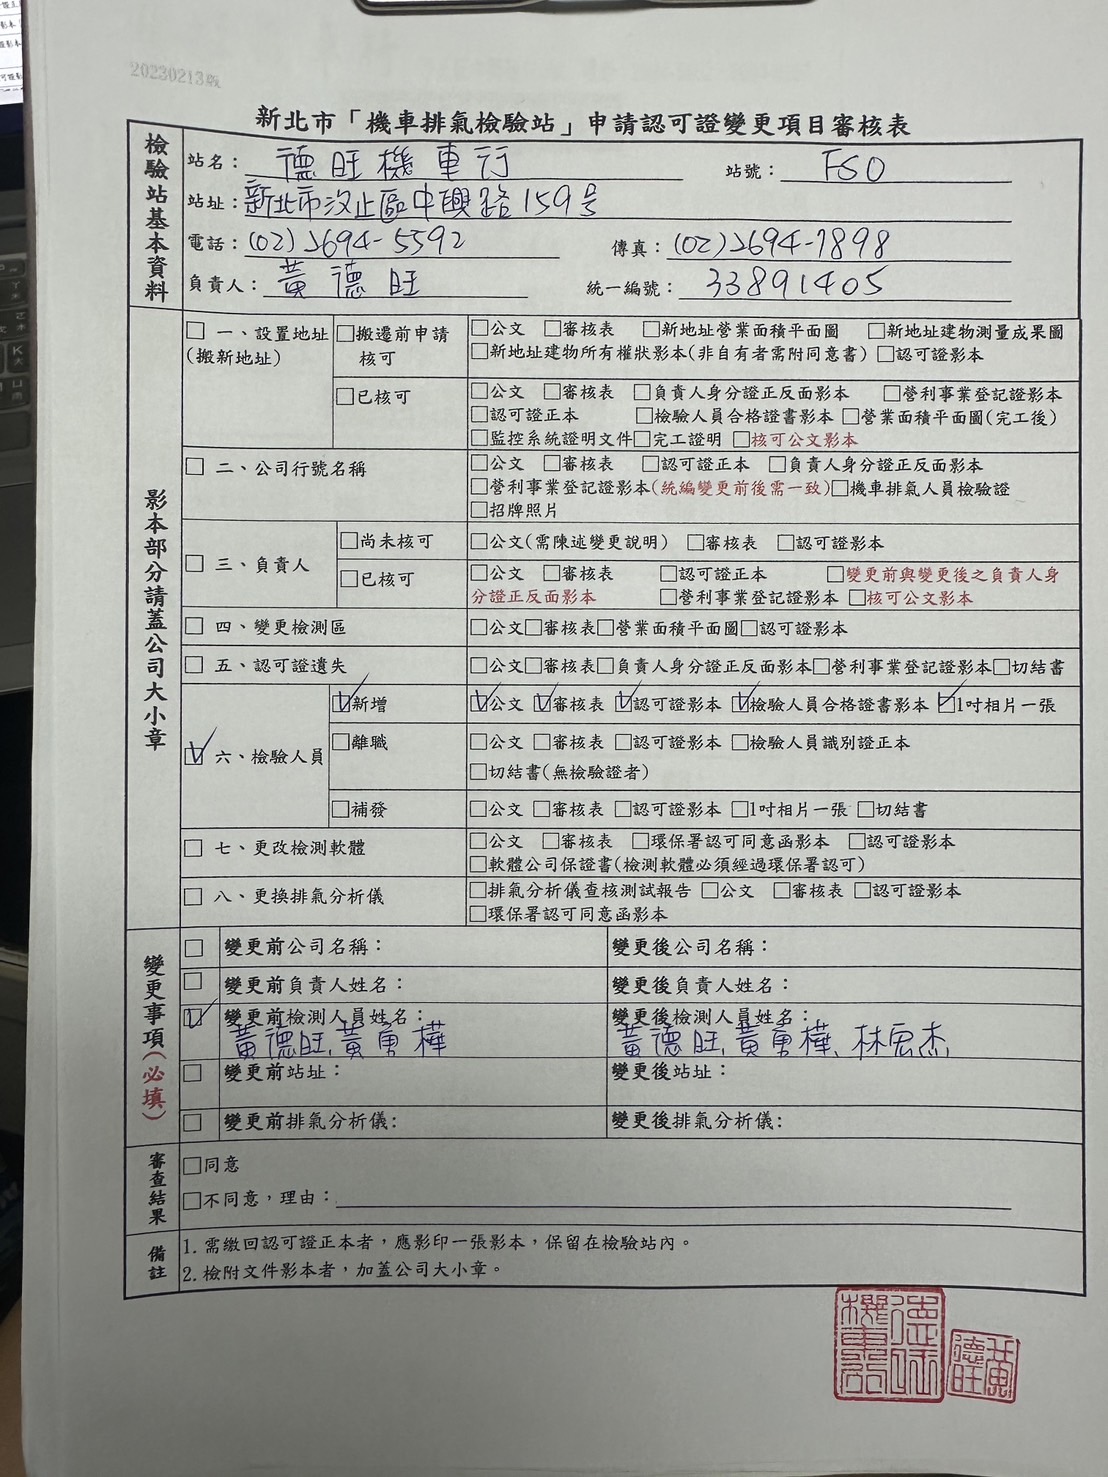 20230213版
新北市「機車排氣檢驗站」申請認可證變更項目審核表
檢驗站基本資料
站名：德旺機車行 站號：F50
站址：新北市汐止區中興路159号
電話：(02)2694-5592 傳真：(02)2694-7898
負責人：黃德旺 統一編號：33891405
影本部分請蓋公司大小章
□ 一、設置地址(搬新地址)
□搬遷前申請核可
□公文 □審核表 □新地址營業面積平面圖 □新地址建物測量成果圖
□新地址建物所有權狀影本(非自有者需附同意書) □認可證影本
□已核可
□公文 □審核表 □負責人身分證正反面影本 □營利事業登記證影本
□認可證正本 □檢驗人員合格證書影本 □營業面積平面圖(完工後)
□監控系統證明文件□完工證明 □核可公文影本
□ 二、公司行號名稱
□公文 □審核表 □認可證正本 □負責人身分證正反面影本
□營利事業登記證影本(統編變更前後需一致)□機車排氣人員檢驗證
□招牌照片
□ 三、負責人
□尚未核可
□公文(需陳述變更說明) □審核表 □認可證影本
□已核可
□公文 □審核表 □認可證正本 □變更前與變更後之負責人身
分證正反面影本 □營利事業登記證影本 □核可公文影本
□ 四、變更檢測區
□公文□審核表□營業面積平面圖□認可證影本
□ 五、認可證遺失
□公文□審核表□負責人身分證正反面影本□營利事業登記證影本□切結書
☑ 六、檢驗人員
☑新增
☑公文 ☑審核表 ☑認可證影本 ☑檢驗人員合格證書影本 ☑1吋相片一張
□離職
□公文 □審核表 □認可證影本 □檢驗人員識別證正本
□切結書(無檢驗證者)
□補發
□公文 □審核表 □認可證影本 □1吋相片一張 □切結書
□ 七、更改檢測軟體
□公文 □審核表 □環保署認可同意函影本 □認可證影本
□軟體公司保證書(檢測軟體必須經過環保署認可)
□ 八、更換排氣分析儀
□排氣分析儀查核測試報告 □公文 □審核表 □認可證影本
□環保署認可同意函影本
變更事項(必填)
□ 變更前公司名稱： 變更後公司名稱：
□ 變更前負責人姓名： 變更後負責人姓名：
☑ 變更前檢測人員姓名： 變更後檢測人員姓名：
黃德旺、黃勇樺 黃德旺、黃勇樺、林宏杰
□ 變更前站址： 變更後站址：
□ 變更前排氣分析儀: 變更後排氣分析儀:
審查結果
□同意
□不同意，理由：
備註
1. 需繳回認可證正本者，應影印一張影本，保留在檢驗站內。
2. 檢附文件影本者，加蓋公司大小章。
德旺機車行
黃德旺